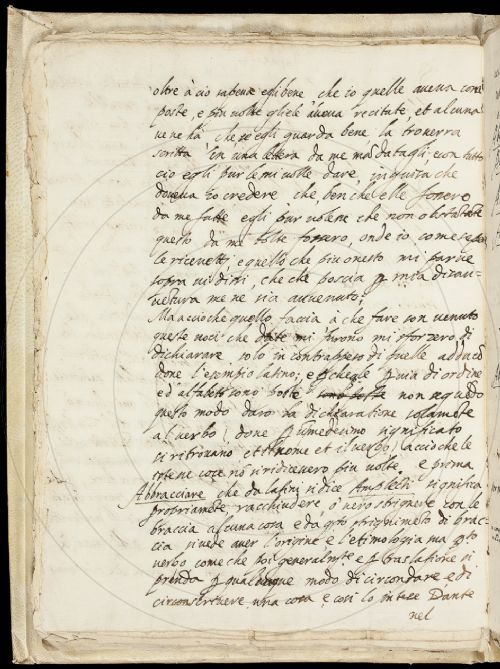 oltre à ciò sapeva egli bene che io quelle aveva com
poste, e più volte gliele aveva recitate, et alcuna
ve ne hà che se egli guarda bene la troverra
scritta in una lettera da me mandatagli; con tutto
ciò egli pur le mi volle dare in guisa che
doveva io credere che, benche elle fossero
da me fatte egli pur volesse che non obstante
questo da me tolte fossero, onde io come
le ricevetti e quello che piu onesto mi parve
sopra vi dissi, che che poscia p mia disau-
vetura me ne sia auvenuto;
Ma acciò che quello faccia à che fare son venuto
queste voci che date mi furono mi sforzerò di
dichiarare solo in contrappeso di quelle adducedo
done l'esempio latino; e p che le p via di ordine
ed alfabeto sono poste non seguedo
questo modo darò la dichiaratione solamete
al verbo dove p lo medesimo significato
si ritrovano et il nome et il verbo, acciò che le
cose nõ si ridicessero piu volte. e prima
Abbracciare che da latini si dice Amplecti significa
propriamete racchiudere, ò vero strignere con le
braccia alcuna cosa e da qsto strignimeto di brac-
cia si vede aver l'origine e l'etimologia ma qsto
verbo come che poi generalmte e p traslatione si
prenda p qualunque modo di circondare e di
circonscrivere una cosa e così lo intese Dante
nel